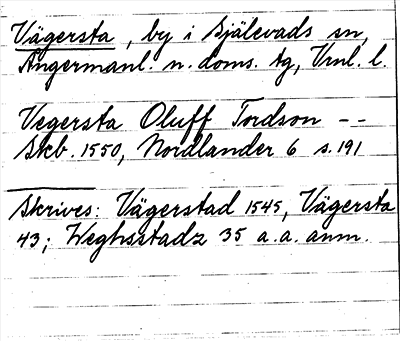 Vägersta, by i Själevads sn,
Ångermanl. n. doms. tg, Vrnl. l.
Vegersta Oluff Tordson --
Skb. 1550, Nordlander 6 s. 191
Skrives: Vägerstad 1545, Vägersta
43; Weghsstadz 35 a.a. anm.